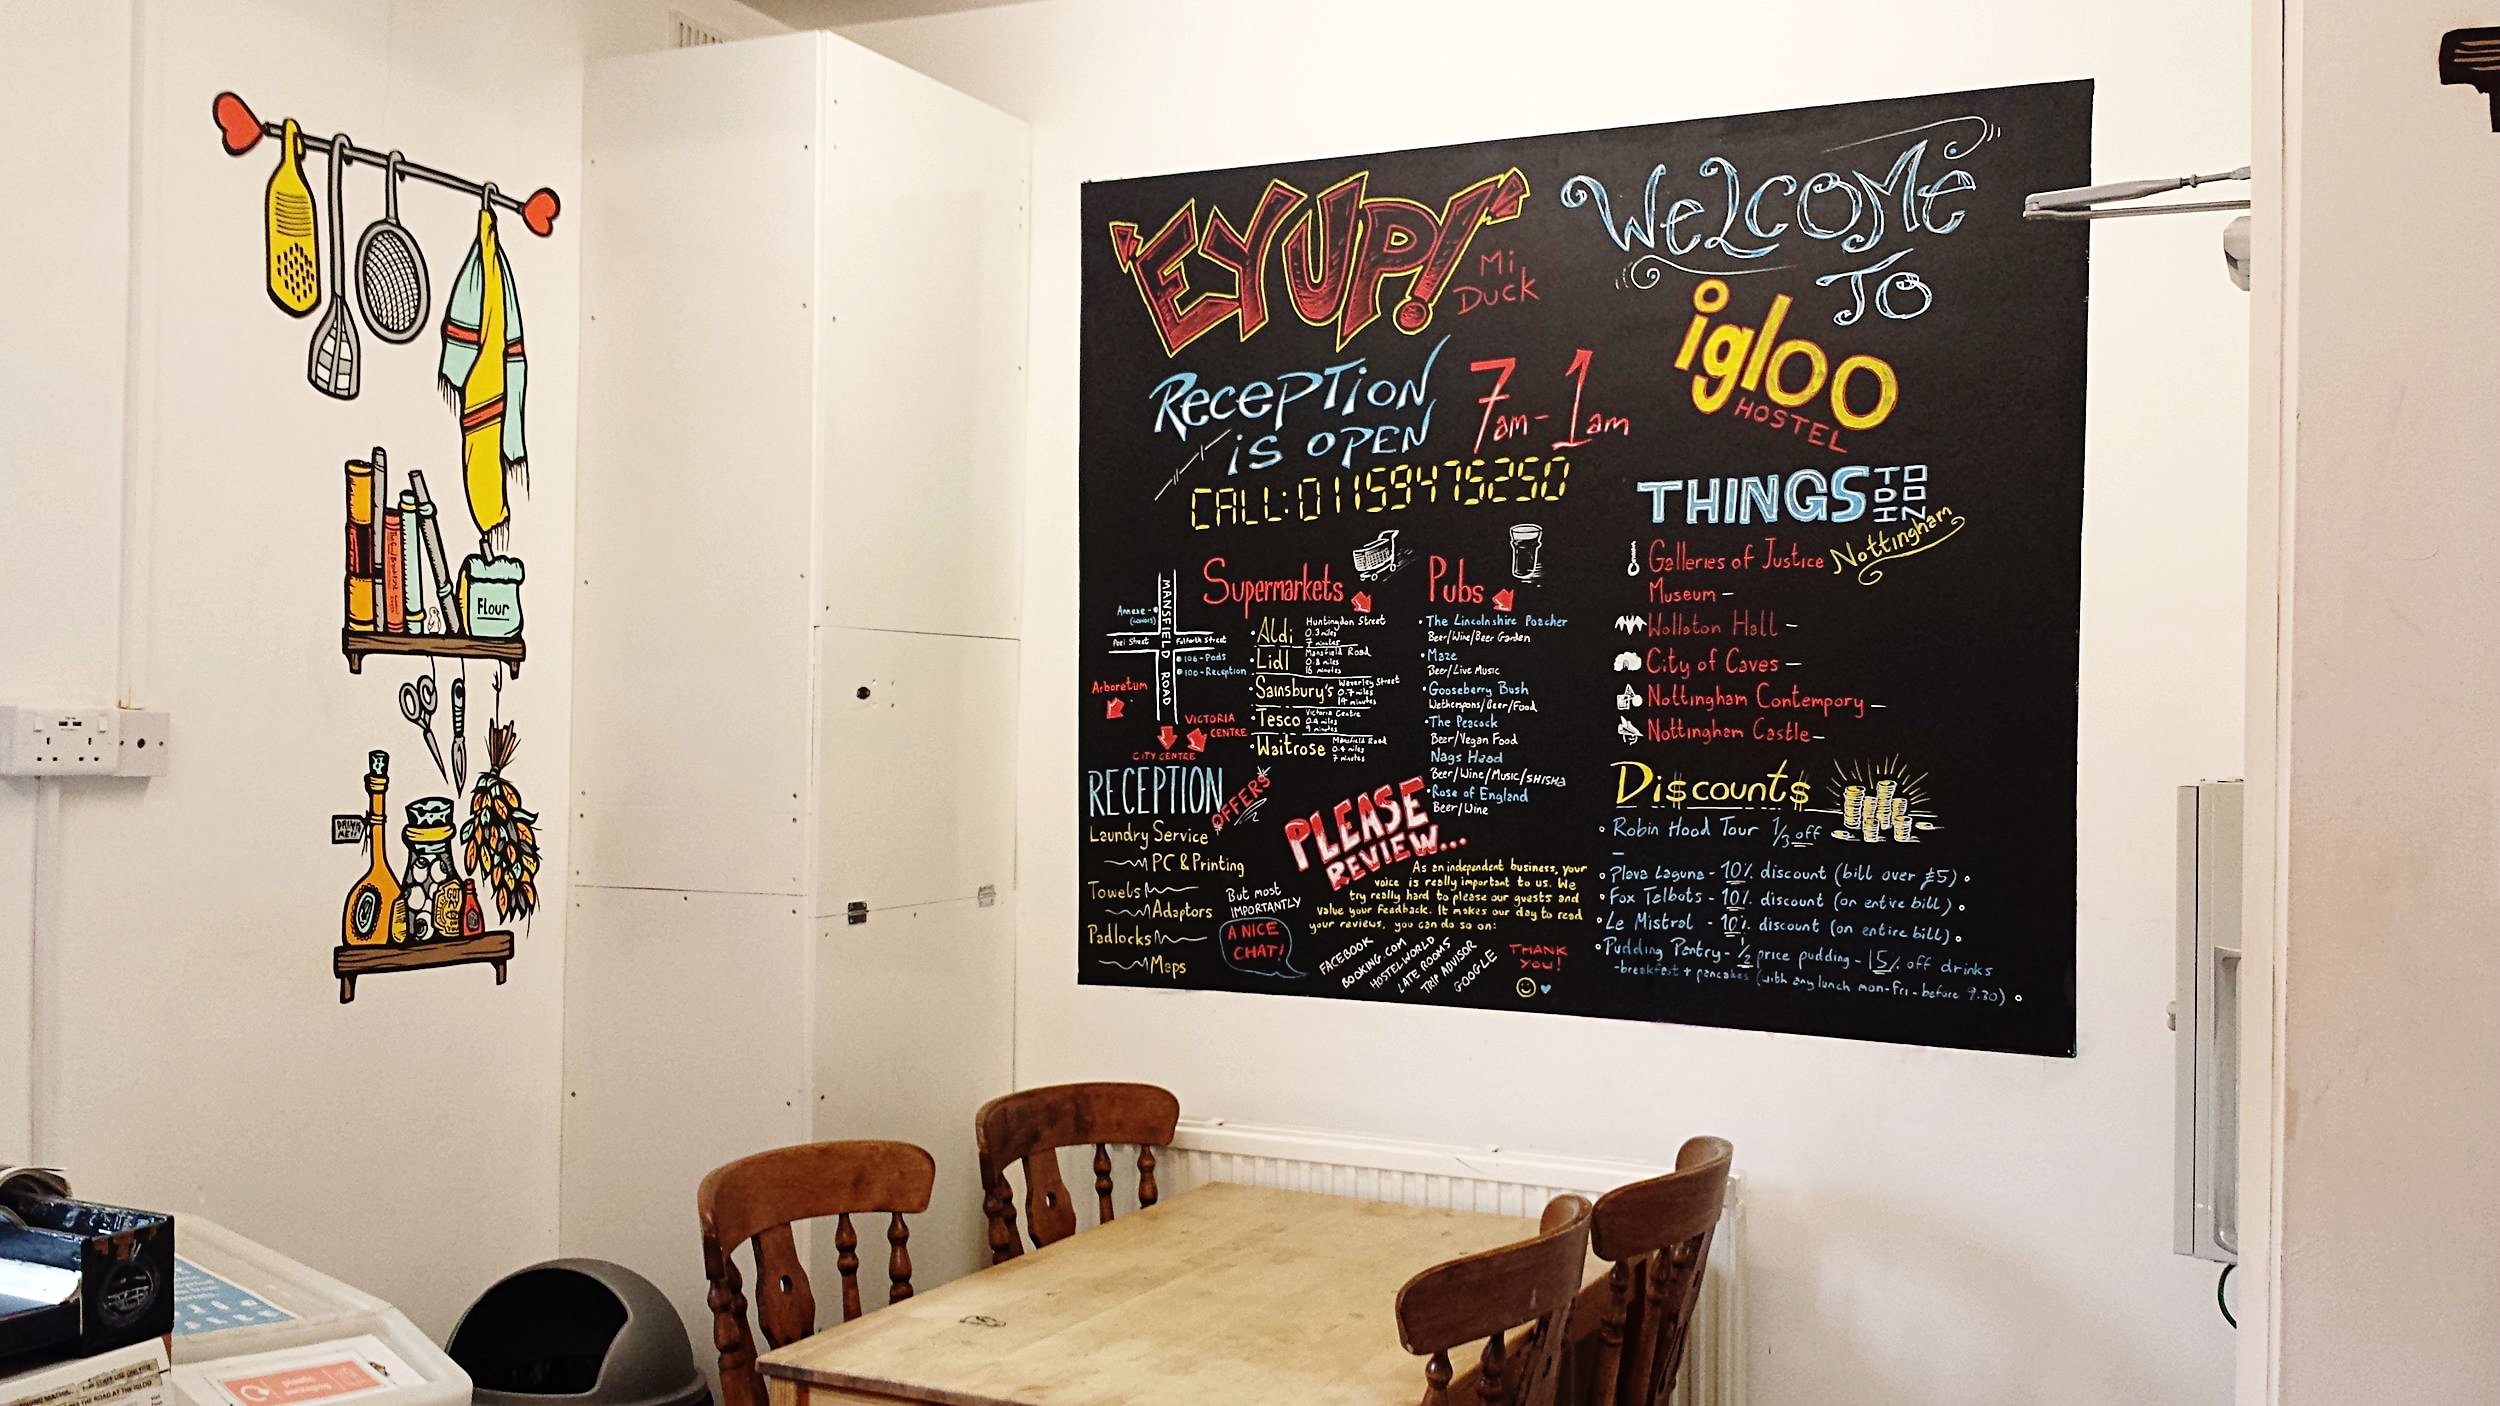 EY UP!
Mi
Duck
WeLCOMe
TO
igloo
HOSTEL
RecePTiON
is OPEN
7am-1am
CALL:01159475250
THINGS TO
DO
IN
Nottingham
Galleries of Justice
Museum –
Wollaton Hall –
City of Caves –
Nottingham Contempory –
Nottingham Castle –
Di$count$
Robin Hood Tour 1/3 off
–
Plava Laguna - 10% discount (bill over £5)
Fox Telbots - 10% discount (on entire bill)
Le Mistral - 10% discount (on entire bill)
Pudding Pantry - 1/2 price pudding - 15% off drinks
-breakfast + pancakes (with any lunch mon-Fri - before 9.30)
Supermarkets
Aldi
Huntingdon Street
0.3 miles
7 minutes
Lidl
Mansfield Road
0.8 miles
16 minutes
Sainsbury's
Waverley Street
0.7 miles
14 minutes
Tesco
Victoria Centre
0.4 miles
9 minutes
Waitrose
Mansfield Road
0.4 miles
7 minutes
Pubs
The Lincolnshire Poacher
Beer/Wine/Beer Garden
Maze
Beer/Live Music
Gooseberry Bush
Wetherspons/Beer/Food
The Peacock
Beer/Vegan Food
Nags Head
Beer/Wine/Music/SHISHA
Rose of England
Beer/Wine
MANSFIELD ROAD
Annexe -
(LONDIS)
Peel Street
Fulforth Street
106 - Pods
100 - Reception
Arboretum
VICTORIA
CENTRE
CITY CENTRE
RECEPTION
OFFERS
Laundry Service
PC & Printing
Towels
Adaptors
Padlocks
Maps
But most
IMPORTANTLY
A NICE
CHAT!
PLEASE
REVIEW...
As an independent business, your
voice is really important to us. We
try really hard to please our guests and
value your feedback. It makes our day to read
your reviews, you can do so on:
FACEBOOK
BOOKING.COM
HOSTELWORLD
LATE ROOMS
TRIP ADVISOR
GOOGLE
THANK
YOU!
Flour
DRINK
ME!!
plastic
packaging